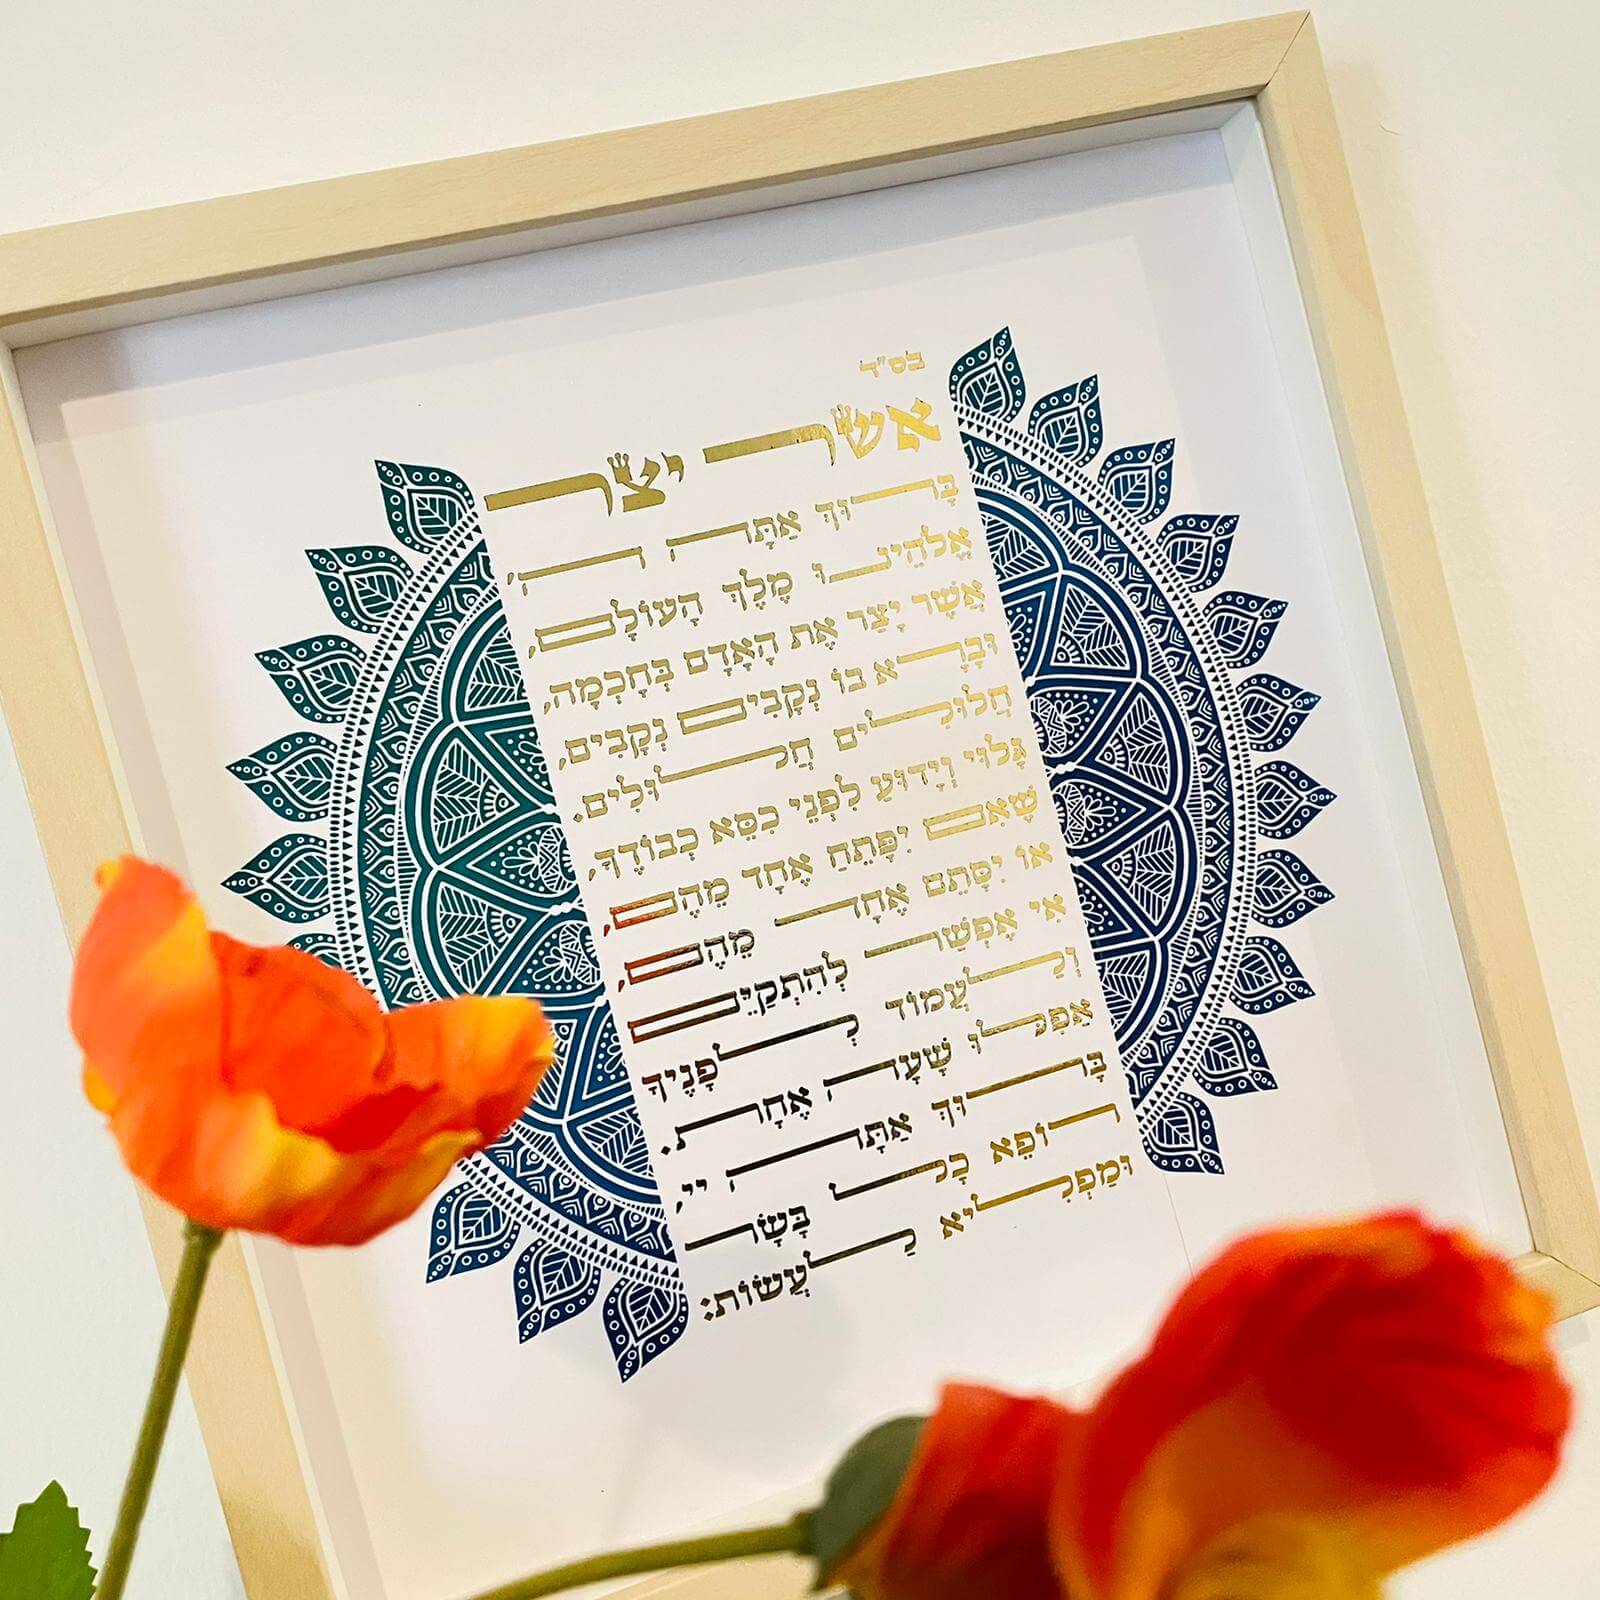 בס"ד
אשר יצר
בָּרוּךְ אַתָּה ה',
אֱלֹהֵינוּ מֶלֶךְ הָעוֹלָם,
אֲשֶׁר יָצַר אֶת הָאָדָם בְּחָכְמָה,
וּבָרָא בוֹ נְקָבִים נְקָבִים,
חֲלוּלִים חֲלוּלִים.
גָּלוּי וְיָדוּעַ לִפְנֵי כִסֵּא כְבוֹדֶךָ,
שֶׁאִם יִפָּתֵחַ אֶחָד מֵהֶם,
אוֹ יִסָּתֵם אֶחָד מֵהֶם,
אִי אֶפְשַׁר לְהִתְקַיֵּם
וְלַעֲמוֹד לְפָנֶיךָ
אֲפִלּוּ שָׁעָה אֶחָת.
בָּרוּךְ אַתָּה יי,
רוֹפֵא כָל בָּשָׂר
וּמַפְלִיא לַעֲשׂוֹת: